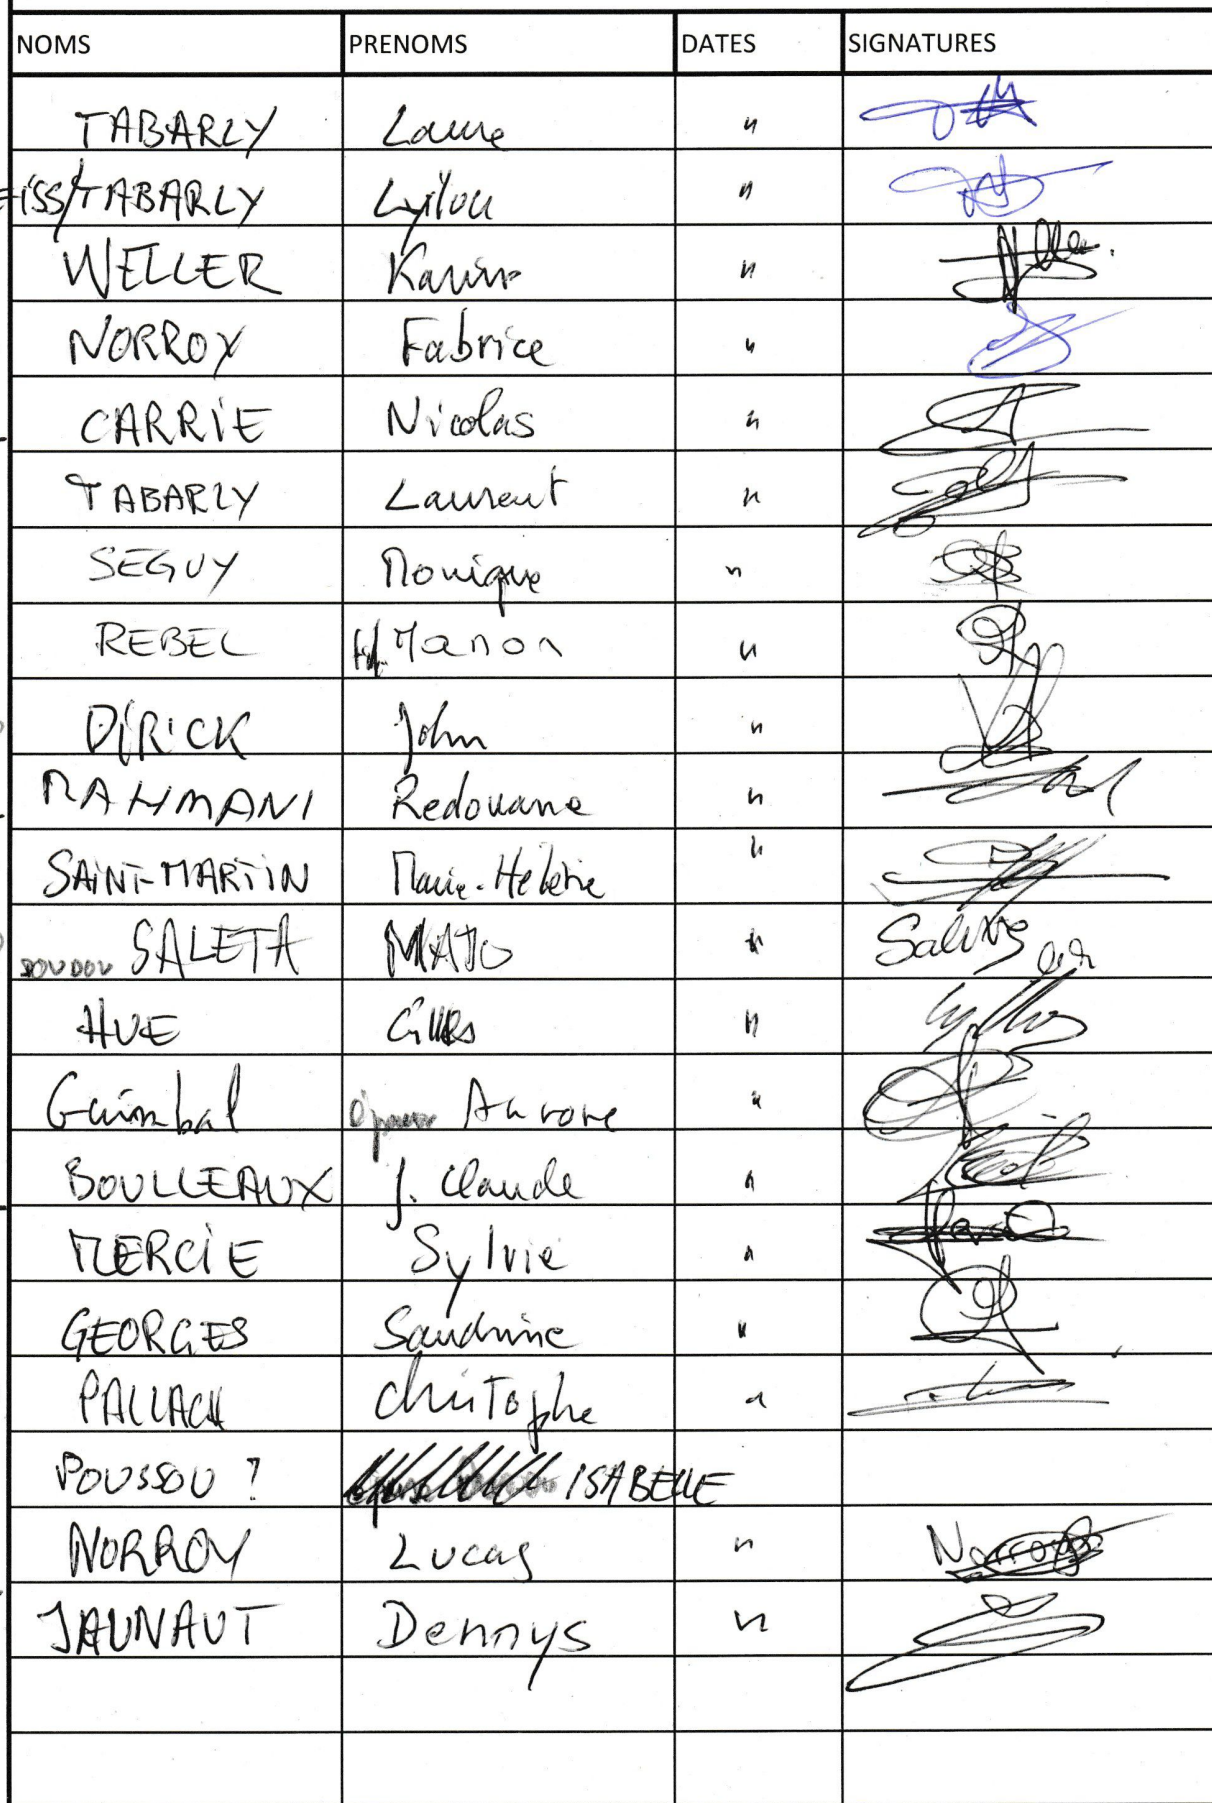 NOMS PRENOMS DATES SIGNATURES
TABARLY Laure "
TABARLY Lyilou "
WELLER Karine "
NORROY Fabrice "
CARRIE Nicolas "
TABARLY Laurent "
SEGUY Monique "
REBEL Manon "
DIRICK John "
RAHMANI Redouane "
SAINT-MARTIN Marie-Hélène "
DOUDOU SALETA MAJO "
HUE Gilles "
Guimbal Aurore "
BOULLEAUX J. Claude "
MERCIE Sylvie "
GEORGES Sandrine "
PALLACH Christophe "
POUSSOU ? ISABELLE
NORROY Lucas " Norroy
JAUNAUT Dennys "